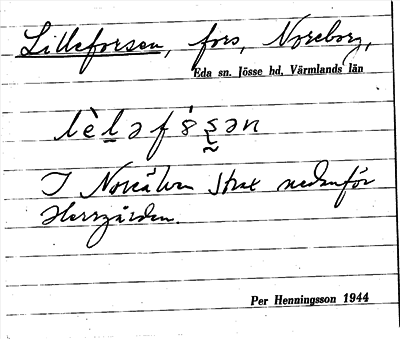 Lilleforsen, fors, Noreborg,
Eda sn. Jösse hd. Värmlands län
lèləfósən
I Norälven strax nedanför
Herrgården.
Per Henningsson 1944